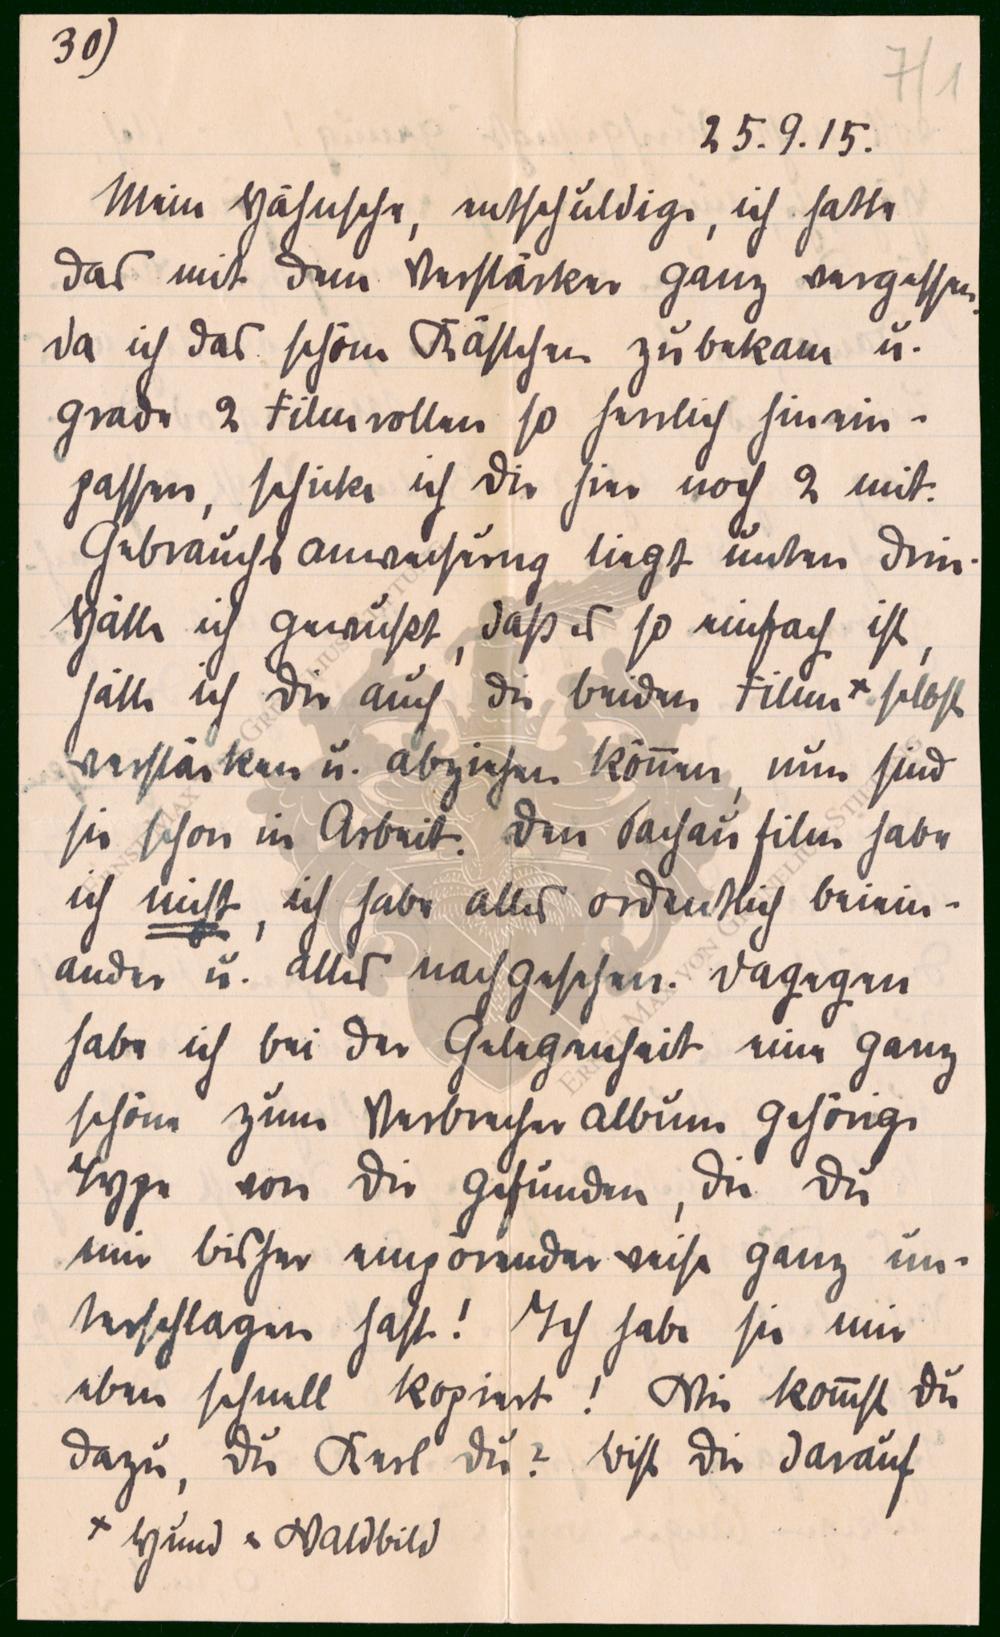 30)
7/1
25.9.15.
Mein Hähnsche, entschuldige, ich hatte
das mit dem Verstärker ganz vergessen.
Da ich das schöne Kästchen zubekam u.
grade 2 Filmrollen so herrlich hinein-
passen, schicke ich Dir hier noch 2 mit.
Gebrauchsanweisung liegt unten drin.
Hätte ich gewußt, daß es so einfach ist,
hätte ich Dir auch die beiden Filme + selbst
verstärken u. abziehen kön̄en, nun sind
sie schon in Arbeit. Den Dachaufilm habe
ich nicht, ich habe alles ordentlich beiein-
ander u. alles nachgesehen. Dagegen
habe ich bei der Gelegenheit eine ganz
schöne zum Verbrecheralbum gehörige
Type von Dir gefunden, die Du
mir bisher empörenderweise ganz un-
terschlagen hast! Ich habe sie mir
eben schnell kopiert! Wie kom̄st Du
dazu, Du Kerl Du? bist Dir darauf
+ Hund u Waldbild
ERNST MAX VON GRUNELIUS-STIFTUNG
ERNST MAX VON GRUNELIUS-STIFTUNG